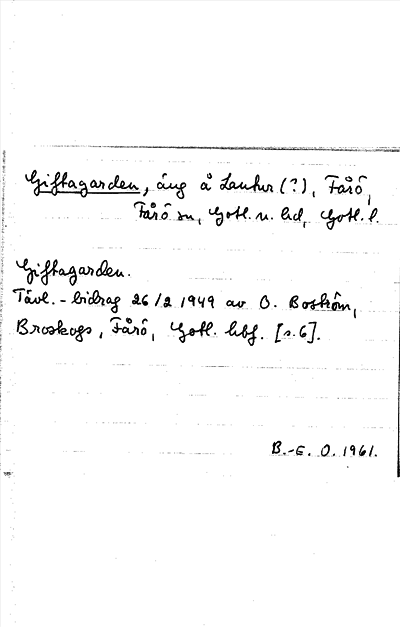 Giftagarden, äng å Lauhur (?), Fårö,
Fårö sn, Gotl. n. hd, Gotl. l.
Giftagarden.
Tävl.-bidrag 26/2 1949 av O. Boström,
Broskogs, Fårö, Gotl. hbf. [s.6].
B.-E. O. 1961.